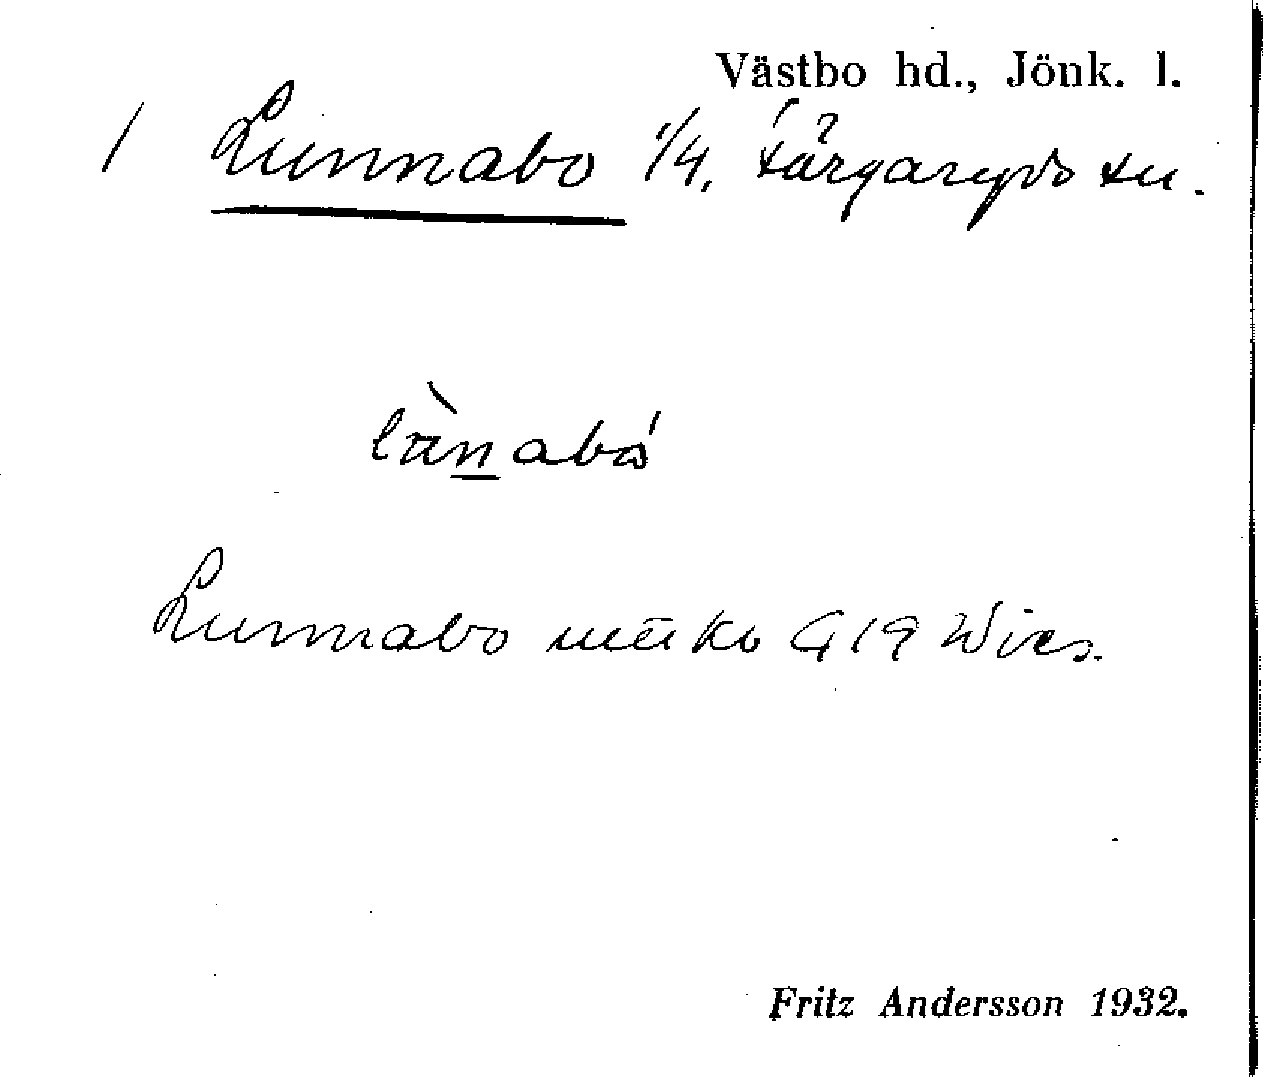 Västbo hd., Jönk. l.
1 Lunnabo 1/4, Färgaryds sn.
lùnabó
Lunnabo
Fritz Andersson 1932.